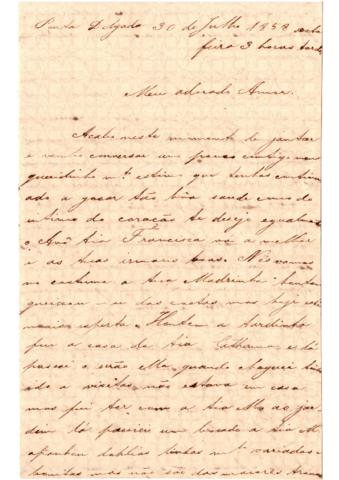 Ponta Delgada 30 de Julho 1888 sexta
feira 3 horas tarde
Meu adorado Amor.
Acabo neste momento de jantar
e venho conversar um pouco contigo meu
queridinho m.to estimo que tenhas continu
ado a gosar tão boa saude como do
intimo do coração te desejo egualmente
o Avô tia Francisca vai melhor
e as tuas irmans boas. Nós vamos
no costume a tua Madrinha tambem
das costas mas hoje está
mais esperta. Hontem a tardinha
fui a casa da tia Catherina
passar o serão Ella quando cheguei tinha
ido a visitas não estava em casa
mas fui ter com a tia M. ao jar
dim lá passeei um bocado a tia M.
apanhou dahlias tinhas m.to variadas
bonitas mas não são das maiores